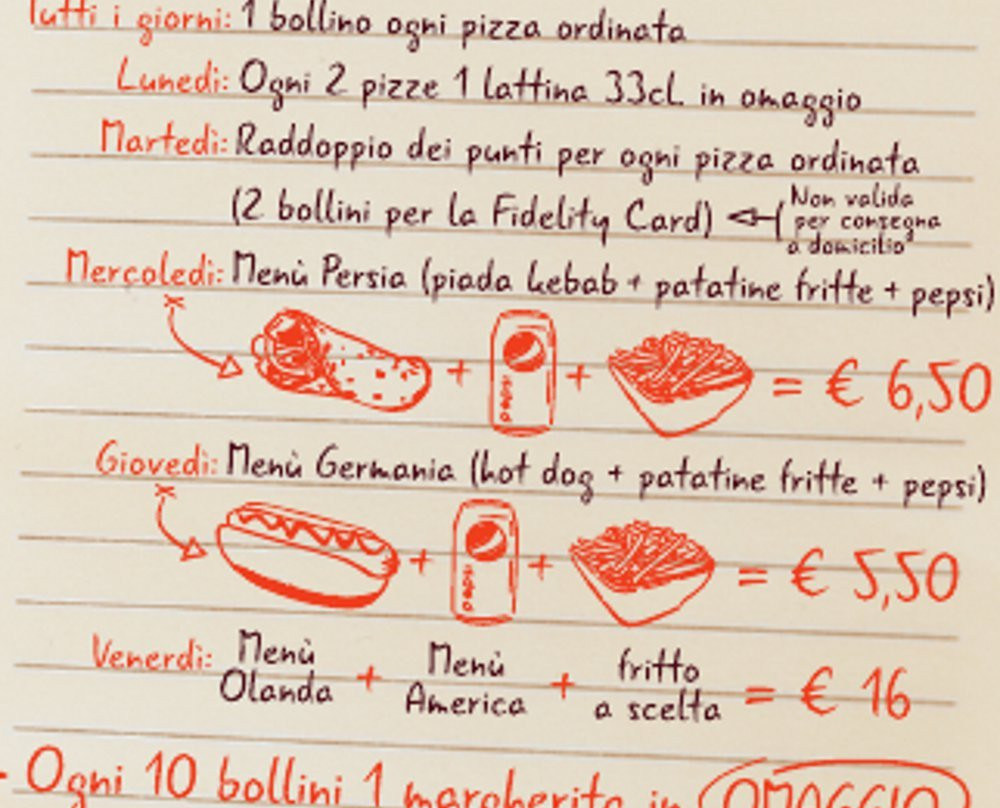 Tutti i giorni: 1 bollino ogni pizza ordinata
Lunedì: Ogni 2 pizze 1 lattina 33cl in omaggio
Martedì: Raddoppio dei punti per ogni pizza ordinata
(2 bollini per la Fidelity Card) (Non valida
per consegna
a domicilio
Mercoledì: Menù Persia (piada kebab + patatine fritte + pepsi)
+ pepsi + = € 6,50
Giovedì: Menù Germania (hot dog + patatine fritte + pepsi)
+ pepsi + = € 5,50
Venerdì: Menù Olanda + Menù America + fritto a scelta = € 16
- Ogni 10 bollini 1 margherita in OMAGGIO